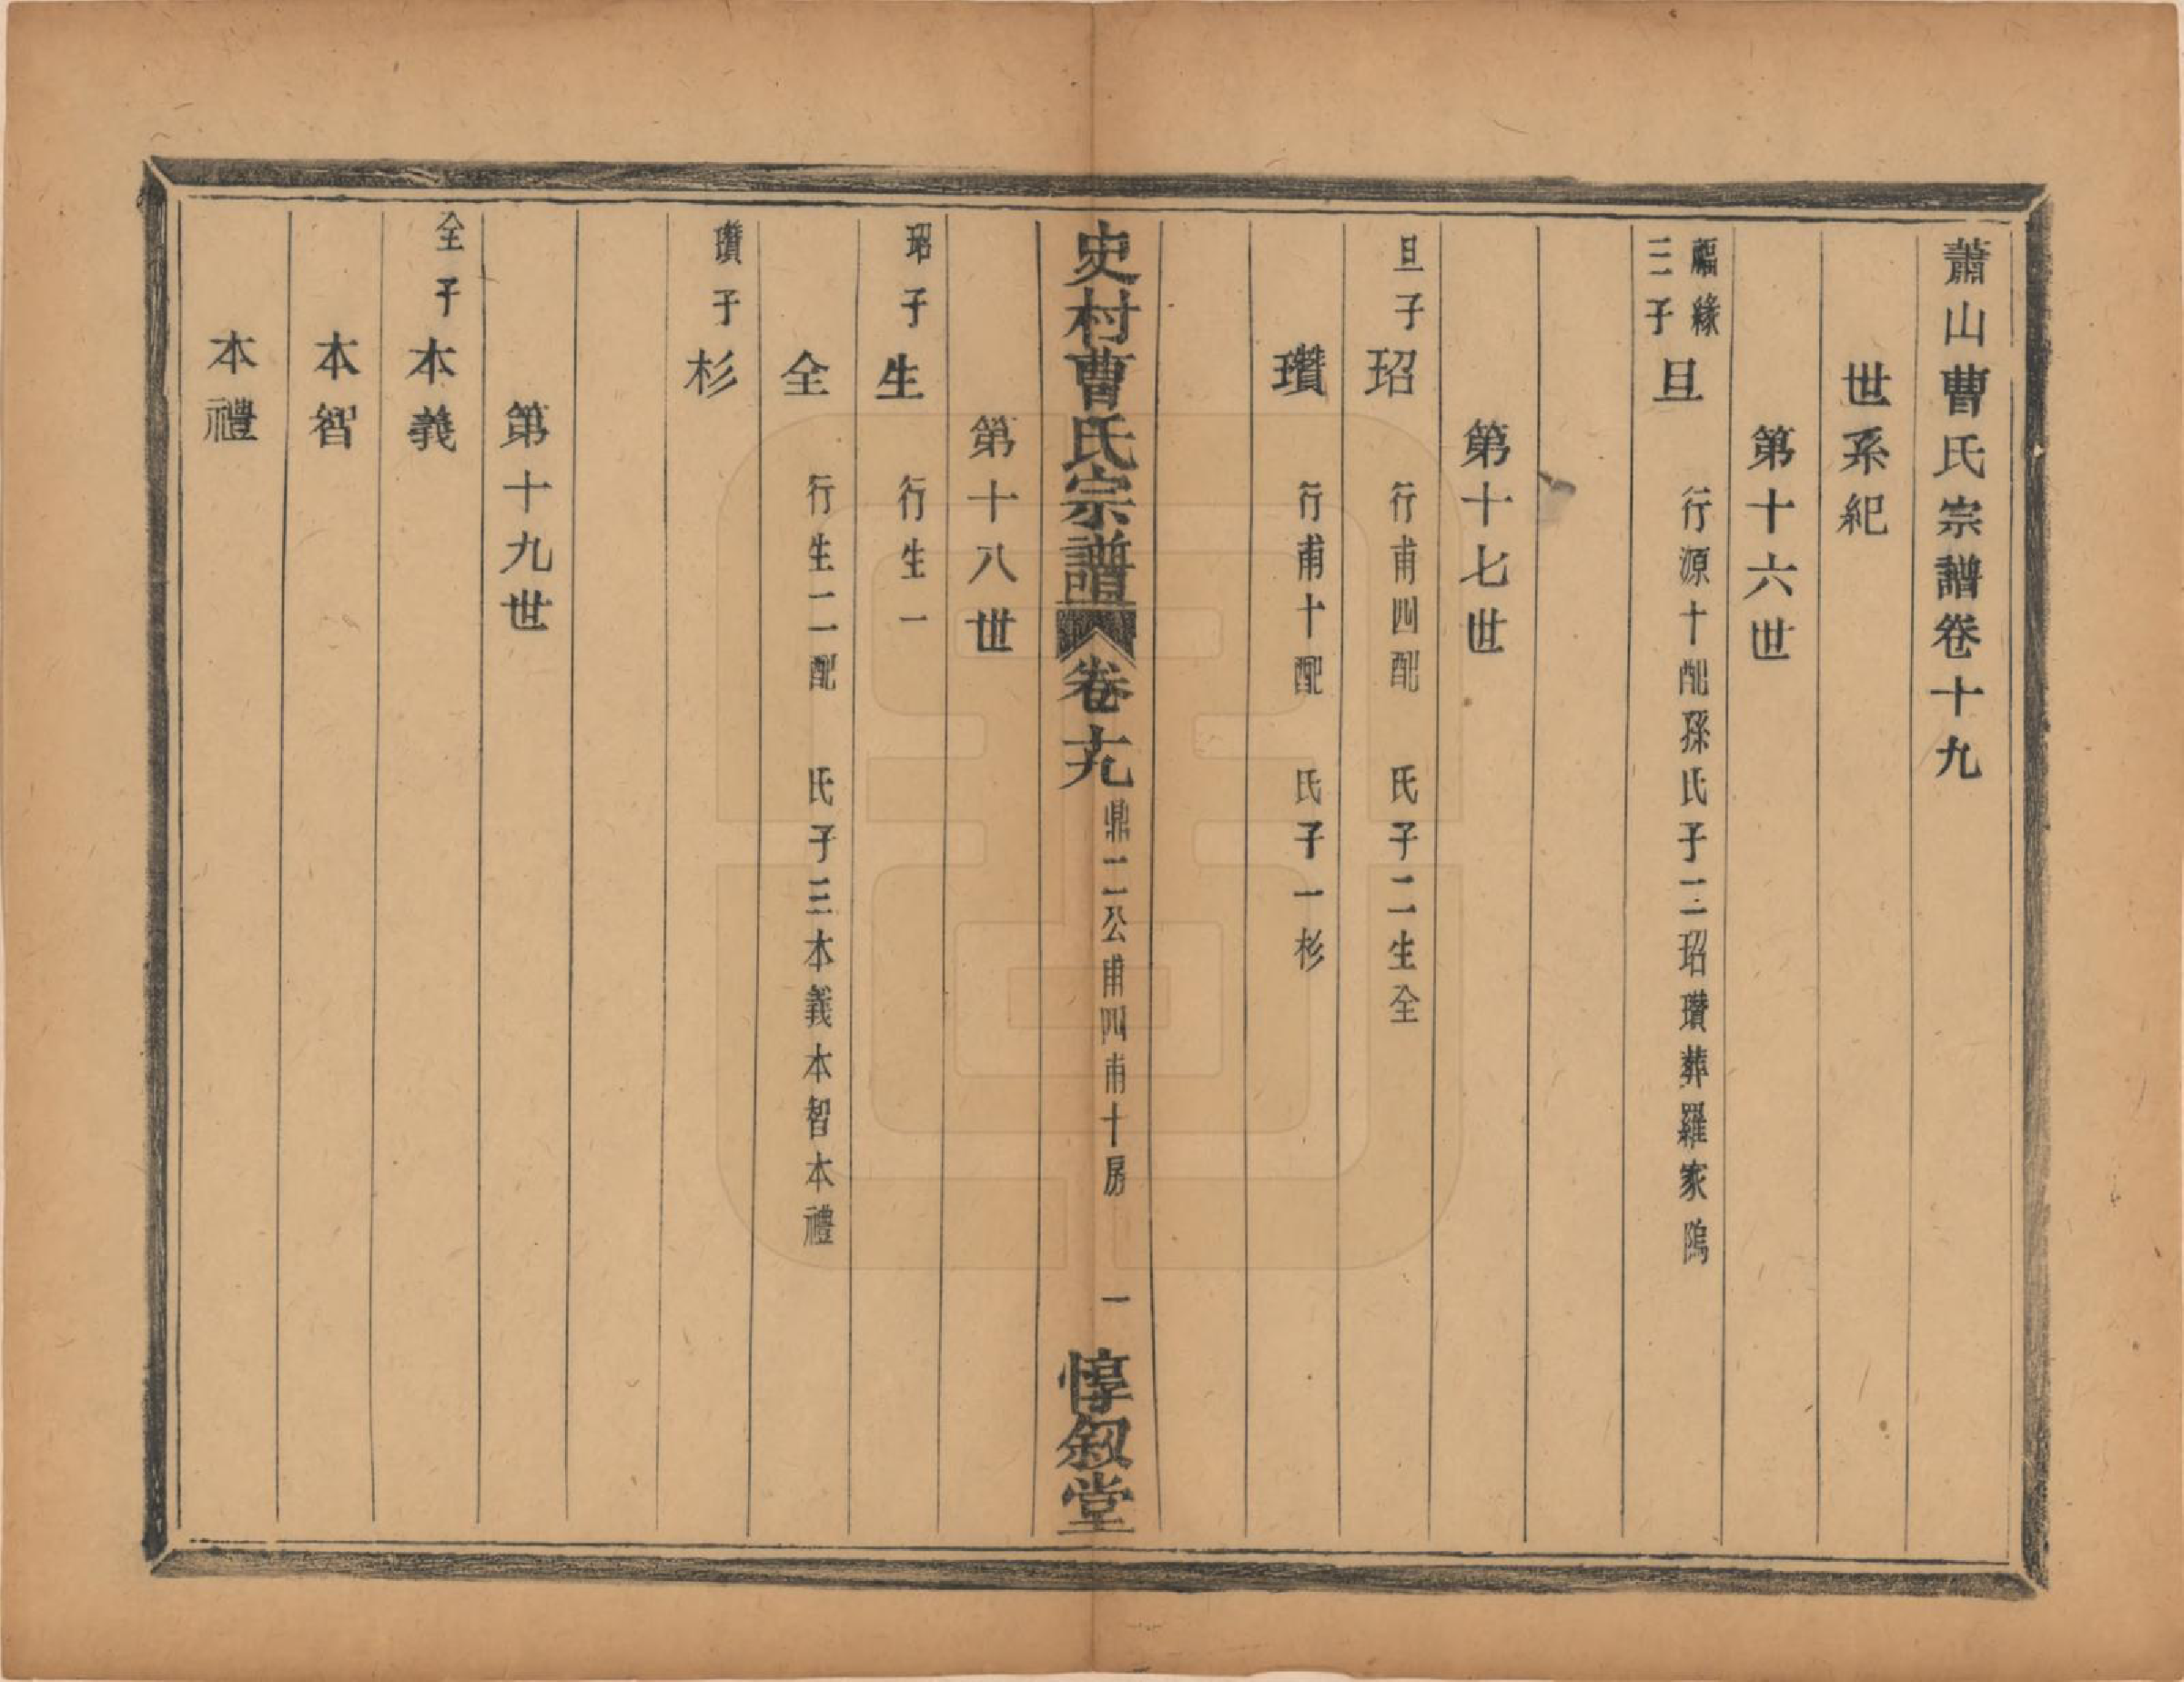 蕭山曹氏宗譜卷十九
世系紀
第十六世
福緣
三子
旦
行源十配孫氏子二玿瓚葬羅家隖
第十七世
旦子
玿
行甫四配　氏子二生全
瓚
行甫十配　氏子一杉
史村曹氏宗譜
卷十九
鼎二公甫四甫十房
一
惇叙堂
第十八世
玿子
生
行生一
全
行生二配　氏子三本義本智本禮
瓚子
杉
第十九世
全子
本義
本智
本禮